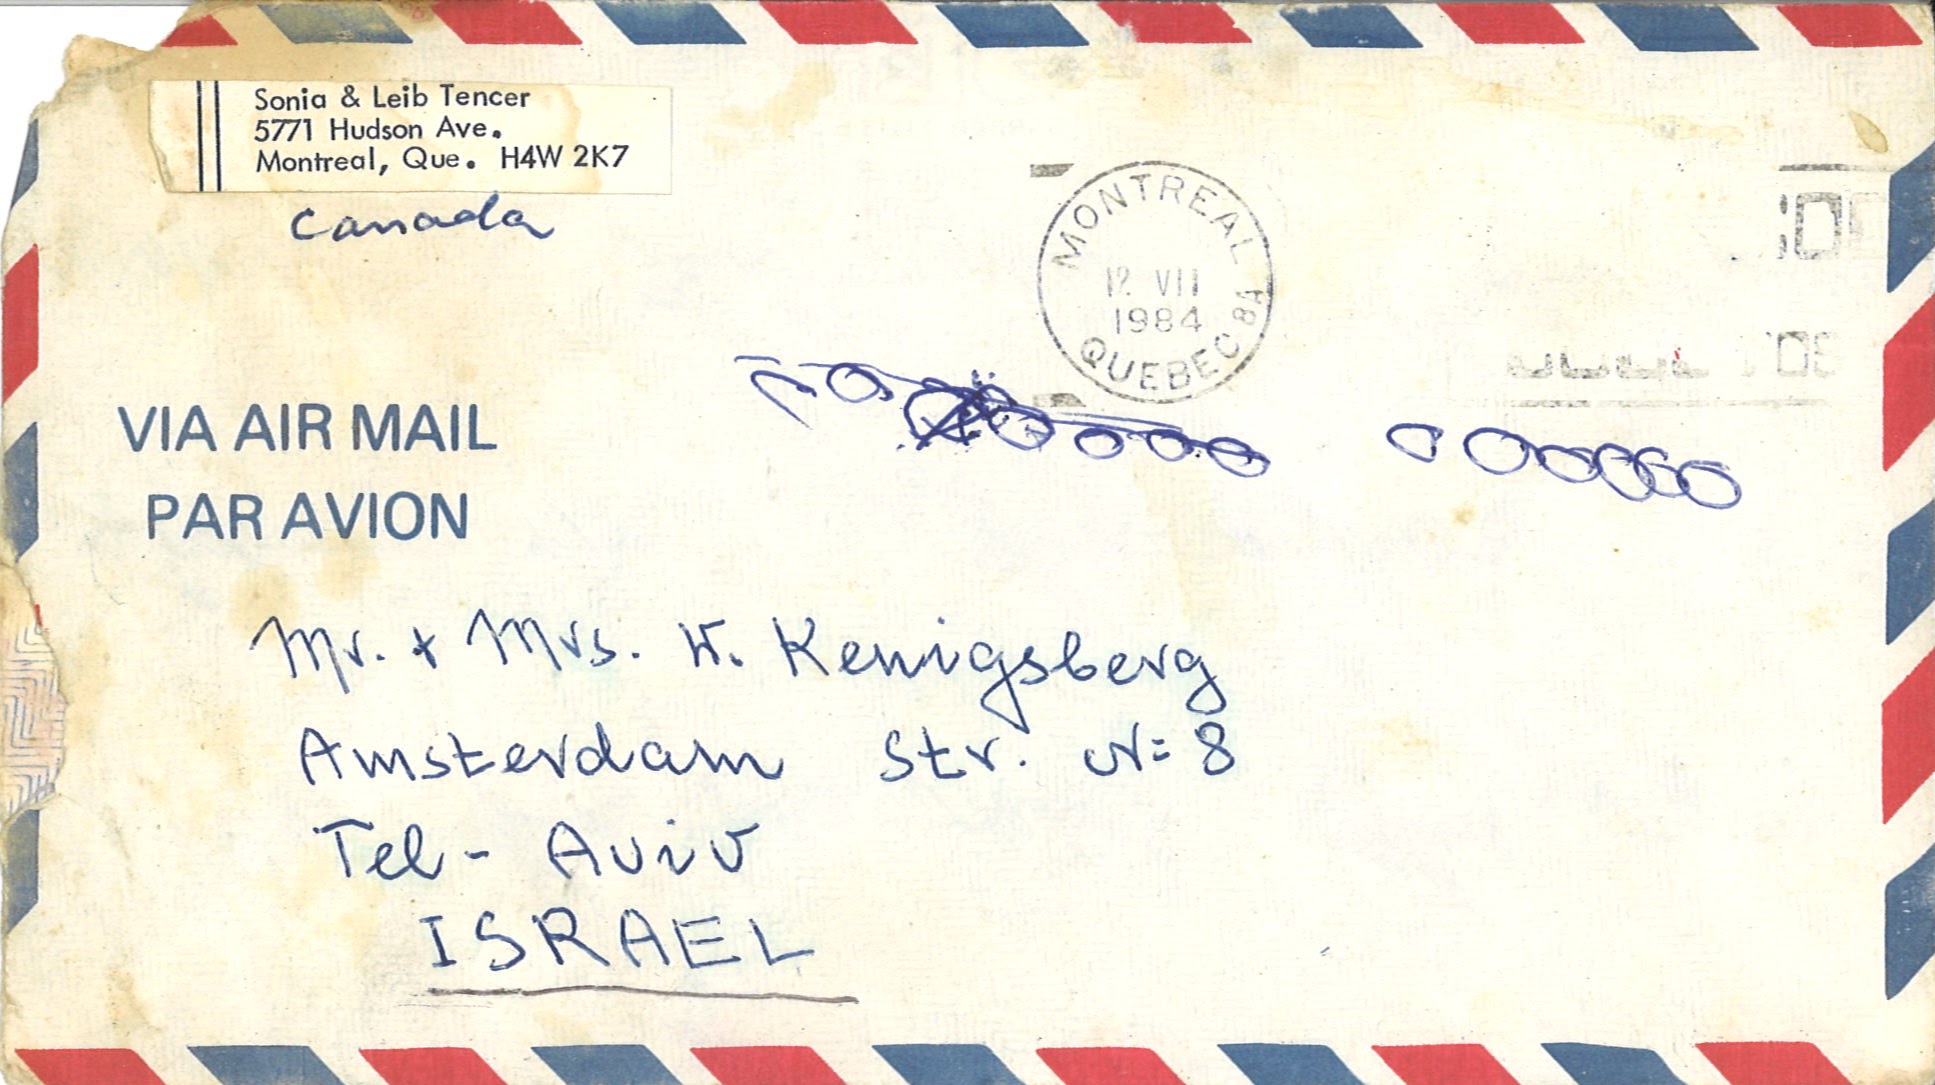 Sonia & Leib Tencer
5771 Hudson Ave.
Montreal, Que. H4W 2K7
Canada
MONTREAL
12 VII
1984
QUEBEC 8A
VIA AIR MAIL
PAR AVION
Mr. + Mrs. W. Kenigsberg
Amsterdam Str. N= 8
Tel - Aviv
ISRAEL